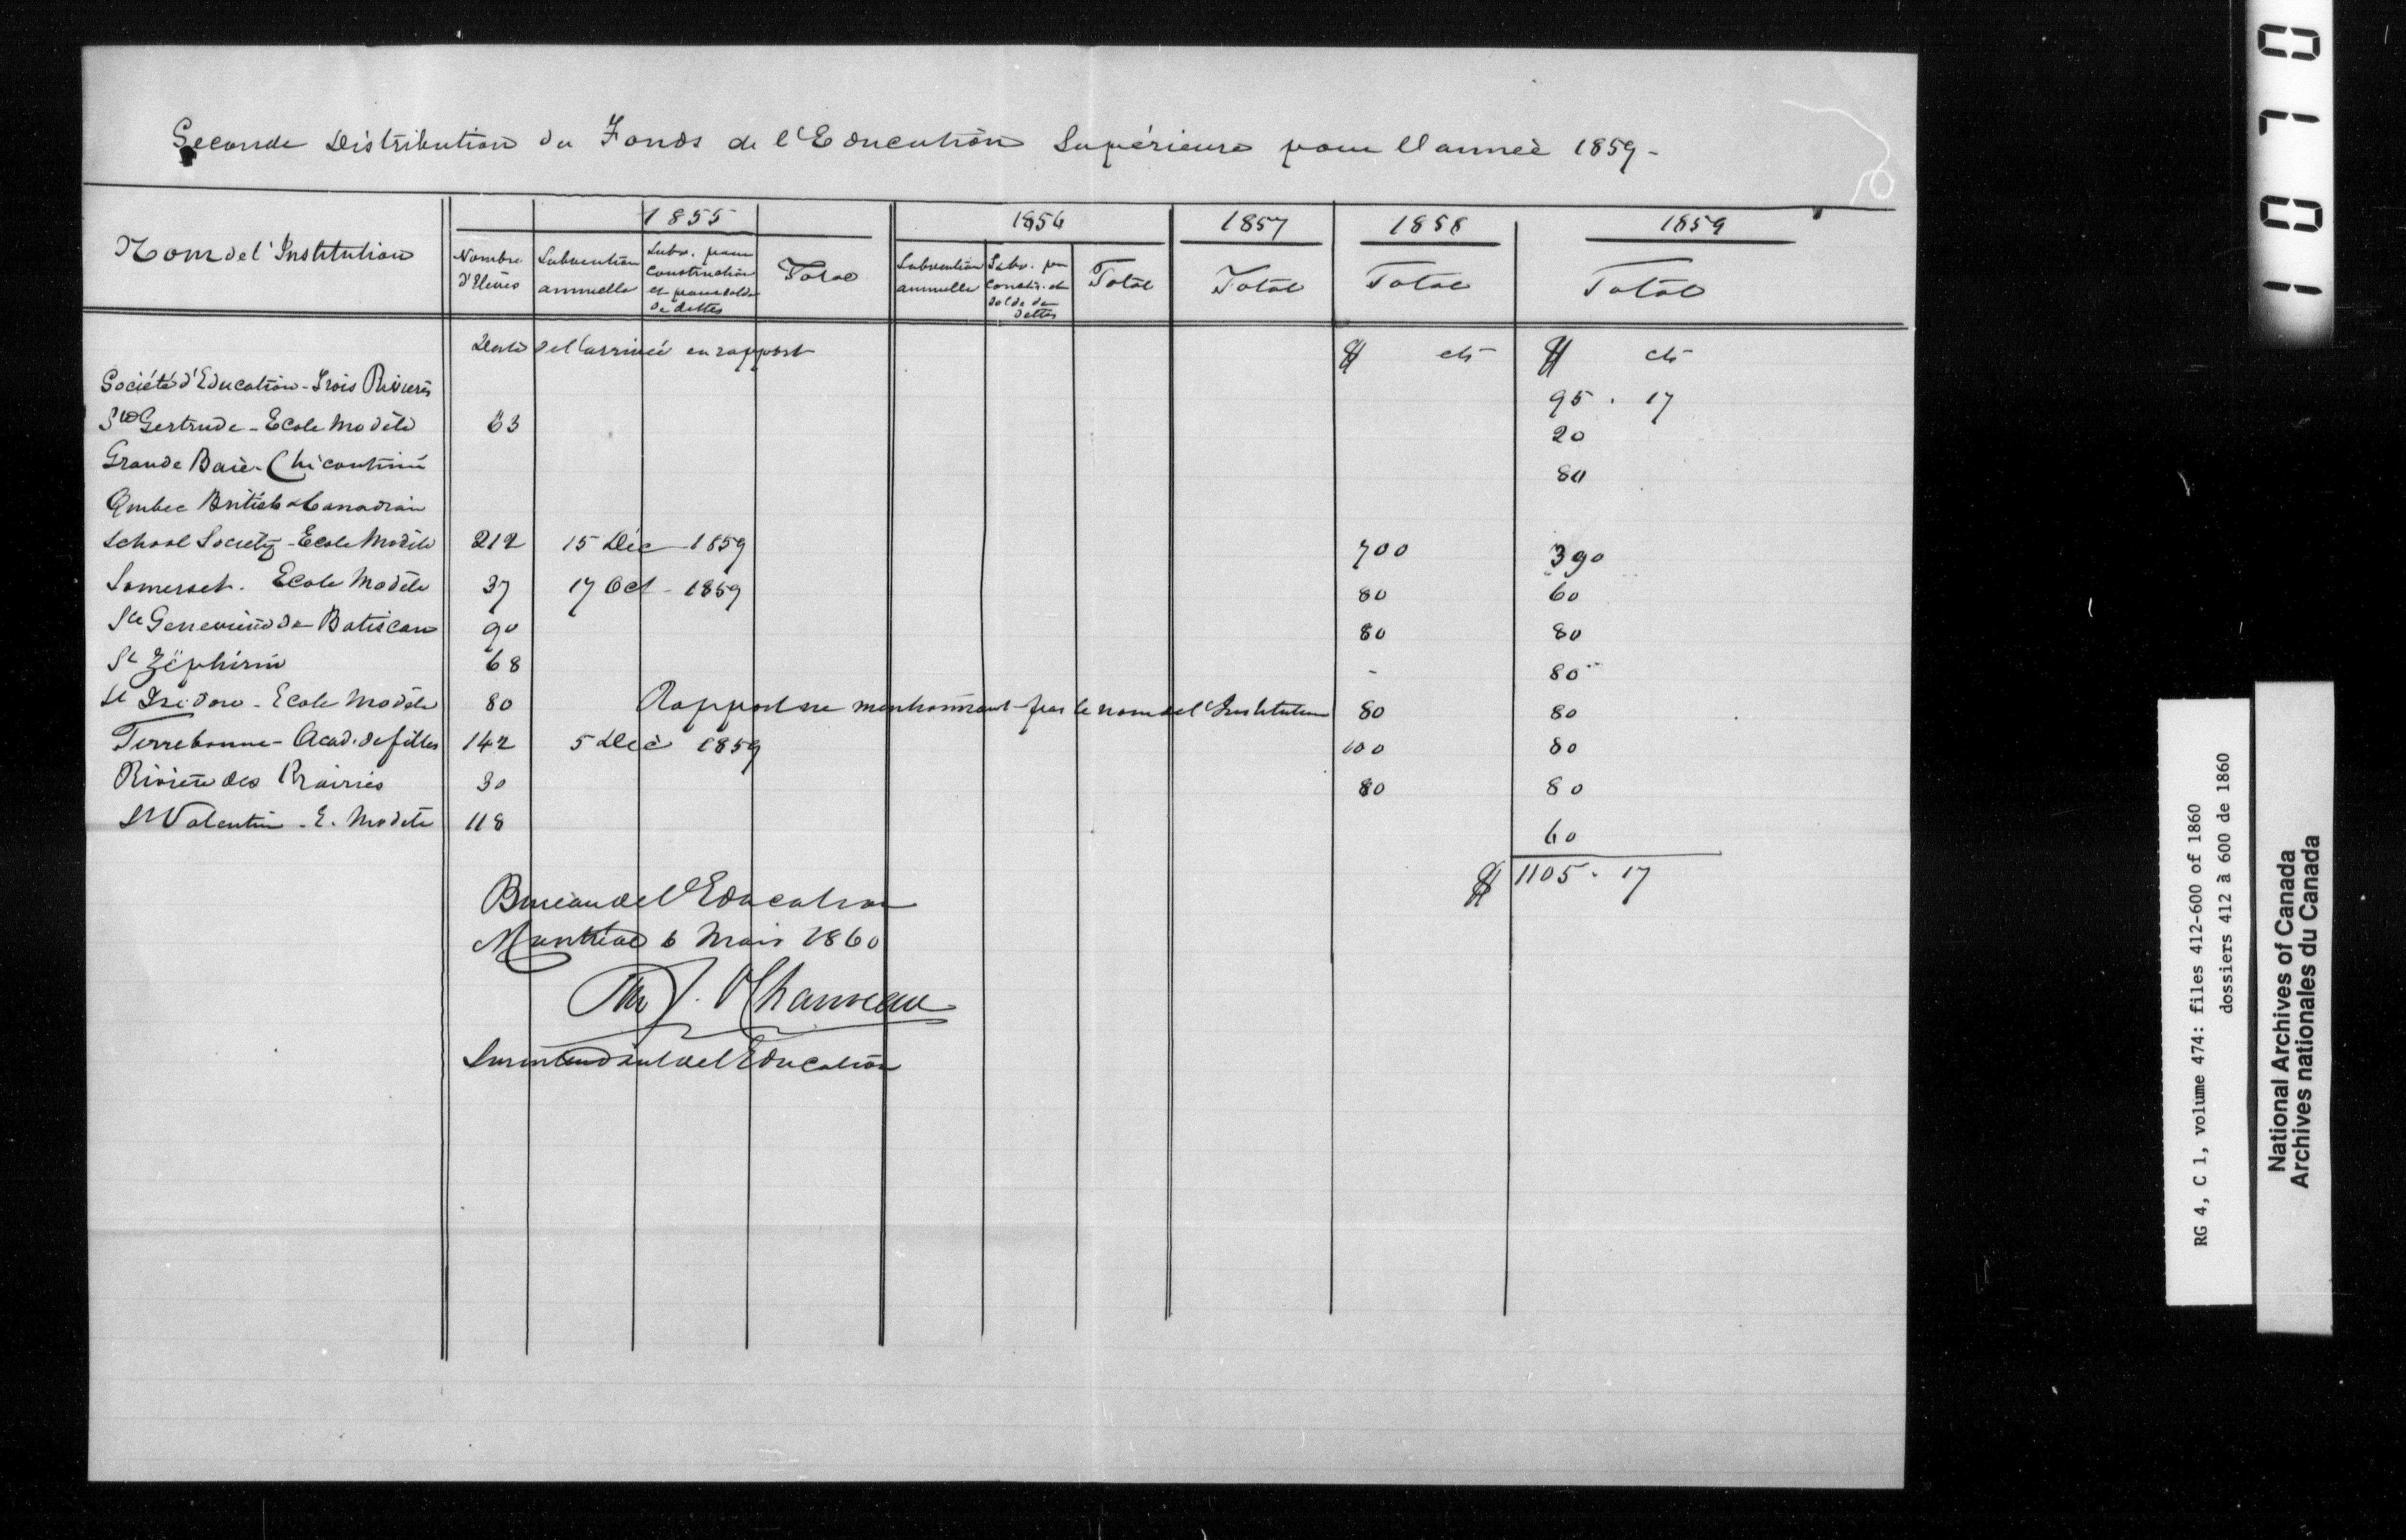 Seconde Distribution du Fonds de l'Education Supérieure pour l'année 1859 -
Nom de l'Institution
1855
1856
1857
1858
1859
Nombre d'Elèves
Subvention annuelle
Subv. pour construction et pour solde de dettes
Total
Subvention annuelle
Subv. pr constr. et solde de dettes
Total
Total
Total
Total
Date de l'arrivée du rapport $ cts $ cts
Société d'Education - Trois Rivieres 95 . 17
Ste Gertrude - Ecole Modèle 63 20
Grande Baie - Chicoutimi 80
Quebec British & Canadian
School Society - Ecole Modèle 212 15 Déc - 1859 700 390
Somerset . Ecole Modèle 37 17 Oct - 1859 80 60
Ste Geneviève de Batiscan 90 80 80
St Zéphirin 68 - 80
St Isidore - Ecole Modèle 80 Rapport ne mentionnant pas le nom de l'Institution 80 80
Terrebonne - Acad. de filles 142 5 Déc 1859 100 80
Rivière des Prairies 30 80 80
St Valentin - E. Modèle 118 60
$ 1105 . 17
Bureau de l'Education
Montréal 6 Mars 1860
P. J. O. Chauveau
Surintendant de l'Education
10710
RG 4, C 1, volume 474: files 412-600 of 1860
dossiers 412 à 600 de 1860
National Archives of Canada
Archives nationales du Canada